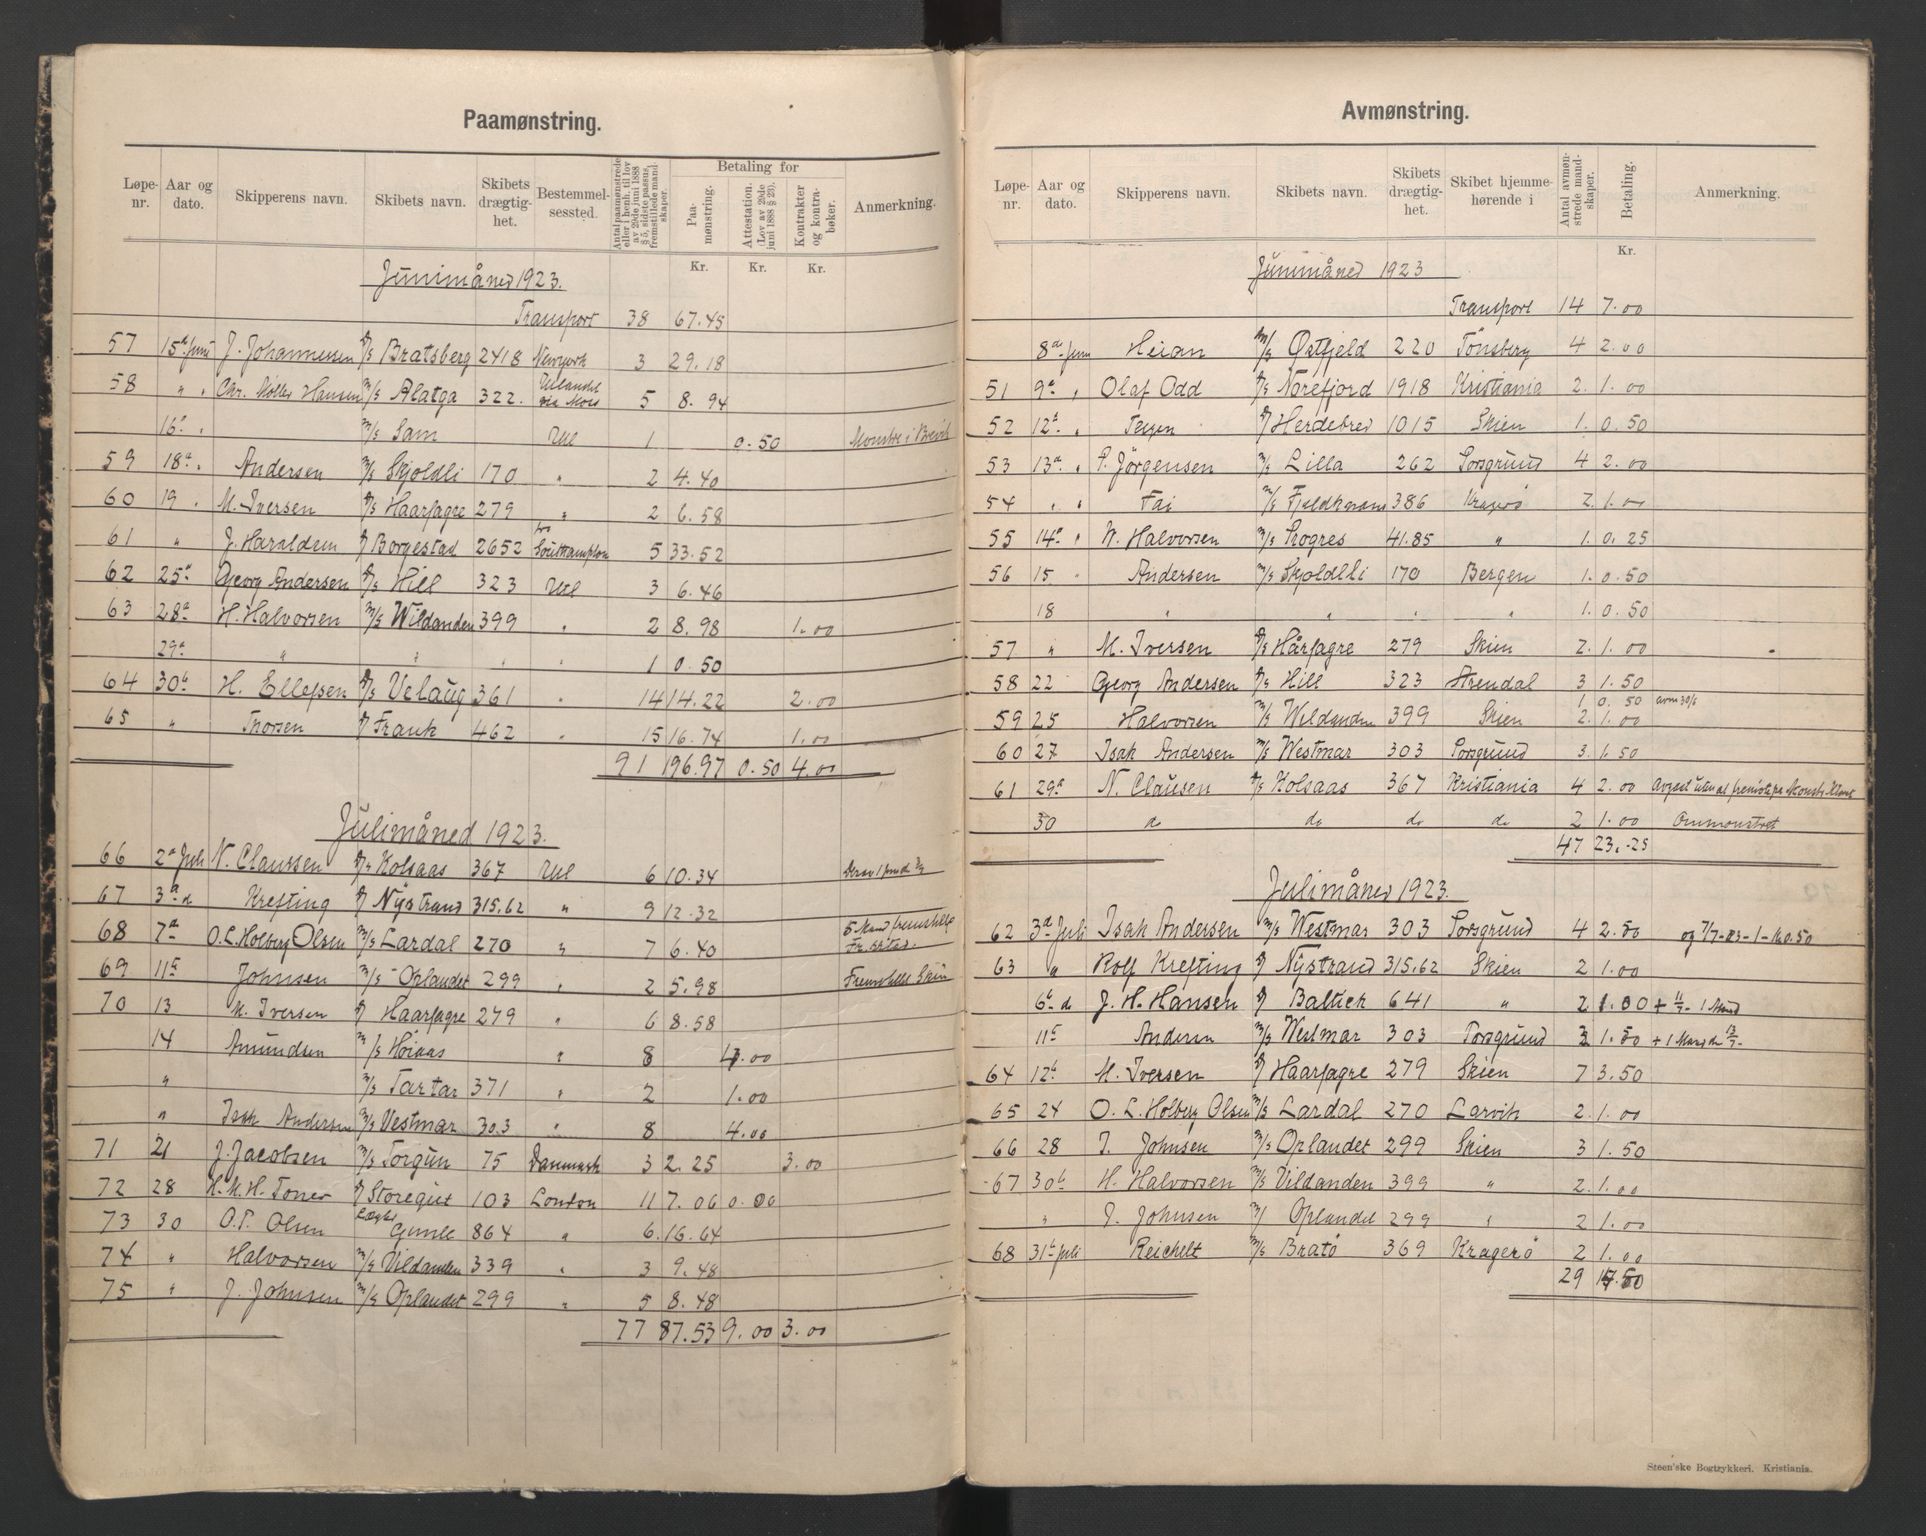 Paamønstring.
Løpe-nr. Aar og dato. Skipperens navn. Skibets navn. Skibets drægtighet. Bestemmelsessted. Antal paamønstrede eller i henh. til lov av 29de juni 1888 § 5, sidste passus, fremstillede mandskaper. Betaling for Paamønstring. Attestation. (Lov av 29de juni 1888 § 23). Kontrakter og kontrabøker. Anmerkning.
Kr. Kr. Kr.
Junimåned 1923.
Transport 38 67.45
57 15de Juni J. Johannessen D/S Bratsberg 2418 Newyork 3 29.18
58 " " Chr. Møller Hansen M/S Alatga 322. Utlandet via Moss 5 8.94
16de " M/S Sam Utl 1 0.50 Mønstr. i Brevik
59 18de " Andersen M/S Skjoldli 170 " 2 4.40
60 19 " M. Iversen D/S Haarfagre 279 " 2 6.58
61 " J. Haraldsen D/ Borgestad 2652 Southampton 5 33.52
62 25de Georg Andersen D/S Hill 323 Utl 3 6.46
63 28de H. Halvorsen M/S Wildanden 399 " 2 8.98 1.00
29de " " " " 1 0.50
64 30te H. Ellefsen D/S Velaug 361 " 14 14.22 2.00
65 " Thorsen D/ Frank 462 " 15 16.74 1.00
91 196.97 0.50 4.00
Julimåned 1923.
66 2de Juli N. Claussen D/S Kolsaas 367 Utl 6 10.34
67 3de d Krefting D/ Nystrand 315,62 " 9 12.32
68 7de O.L. Holberg Olsen M/S Lardal 270 " 7 6.40 5 Mand fremstillet
69 11te Johnsen M/S Oplandet 299 " 2 5.98 Fremstillet Skien
70 13 M. Iversen D/ Haarfagre 279 " 6 8.58
14 Amundsen M/S Høiaas " 8 4.00
" M/S Tartar 371 " 2 1.00
" Isak Andersen M/S Vestmar 303 " 8 4.00
71 21 J. Jacobsen M/S Torgun 75 Danmark 3 2.25 3.00
72 28 H.M.H. Toner D/ Storegut 103 London 11 7.06 0.00
73 30 O.T. Olsen Lægter Gimle 864 " 6. 16.64
74 " Halvorsen M/S Vildanden 339 " 3 9.48
75 " J. Johnsen M/S Oplandet 299 " 5 8.48
77 87.53 9.00 3.00
Avmønstring.
Løpe-nr. Aar og dato. Skipperens navn. Skibets navn. Skibets drægtighet. Skibet hjemmehørende i Antal avmønstrede mandskaper. Betaling. Anmerkning.
Kr.
Junimåned 1923
Transport 14 7.00
8de Juni Heian M/S Østfjeld 220 Tönsberg 4 2.00
51 9de " Olaf Odd D/S Norefjord 1918 Kristiania 2. 1.00
52 12te " Tergen D/ Herdebred 1015 Skien 1. 0.50
53 13de " P. Jörgensen M/S Lilla 262 Porsgrund 4 2.00
54 " " Fai M/S Fjeldknaus 386 Kragerø 2. 1.00
55 14de " W. Halvorsen M/S Progres 41.85 " 1. 0.25
56 15 " Andersen M/S Skjoldli 170 Bergen 1. 0.50
18 " " " " 1. 0.50
57 " M. Iversen D/S Hårfagre 279 Skien 2. 1.00
58 22 Georg Andersen D/S Hill 323 Arendal 3 1.50
1 0.50 avm 30/6
59 25 Halvorsen M/S Wildanden 399 Skien 2. 1.00
60 27 Isak Andersen M/S Westmar 303 Porsgrund 3. 1.50
61 29de N. Clausen D/S Kolsaas 367 Kristiania 4 2.00 Avgaat uten at fremstes paa Mønstr.
30 do do do do 2 1.00 Ommønstret
47 23.25
Julimåned 1923.
62 3de Juli Isak Andersen M/S Westmar 303 Porsgrund 4 2.50 og 7/7-23-1-à 0.50
63 " Rolf Krefting D/ Nystrand 315,62 Skien 2 1.00
6te d J. H. Hansen D/ Baltick 641 " 2 1.00 + 11/7- 1 Mand
11te Andersen M/S Westmar 303 Porsgrund 3 1.50 + 1 Mand 13/7-
64 12te M. Iversen D/ Haarfagre 279 Skien 7 3.50
65 24 O. L. Holberg Olsen M/S Lardal 270 Larvik 2. 1.00
66 28 J. Johnsen M/S Oplandet 299 Skien 3 1.50
67 30te H. Halvorsen M/S Vildanden 399 " 2. 1.00
" J. Johnsen M/ Oplandet 299 " 2 1.00
68 31te Juli Reichelt M/S Bratø 369 Kragerø 2 1.00
29
Steen'ske Bogtrykkeri. Kristiania.